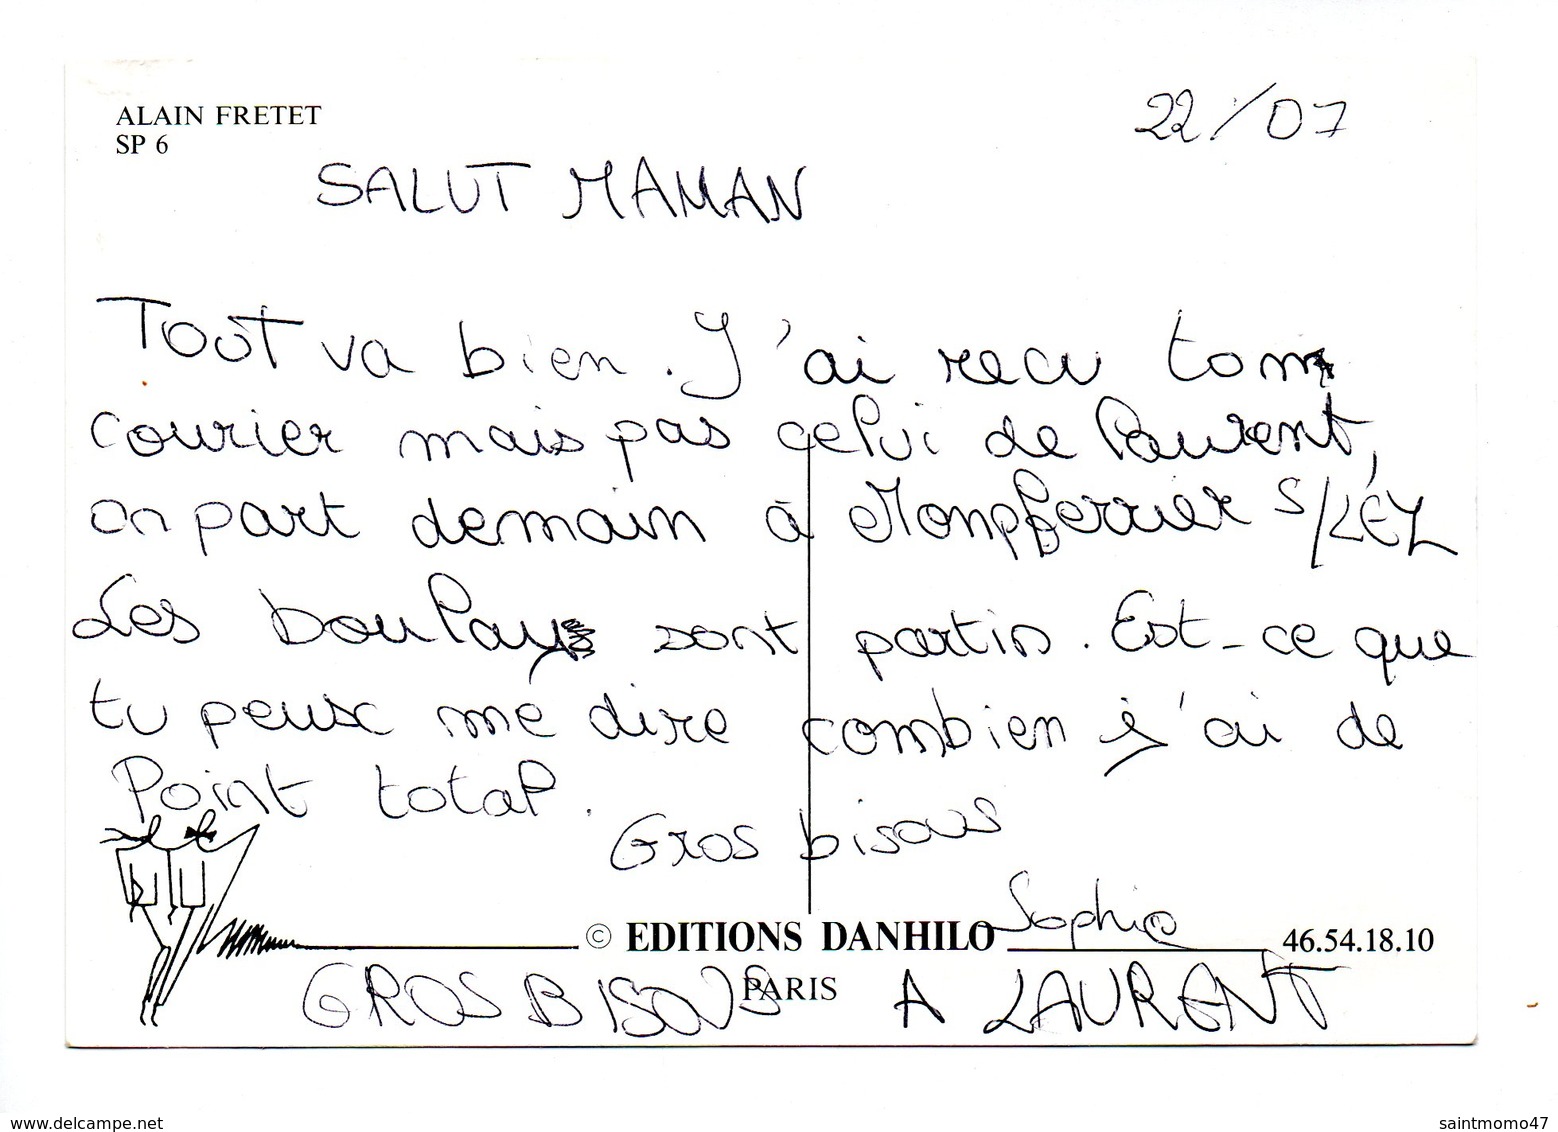 ALAIN FRETET
SP 6
22/07
SALUT MAMAN
Tout va bien. J'ai recu ton
courier mais pas celui de Laurent,
on part demain à Monpferrier S/LEZ
Les boulays sont partis. Est-ce que
tu peux me dire combien j'ai de
Point total.
Gros bisous
Sophie
© EDITIONS DANHILO
46.54.18.10
PARIS
GROS BISOUS A LAURENT
www.delcampe.net
saintmomo47